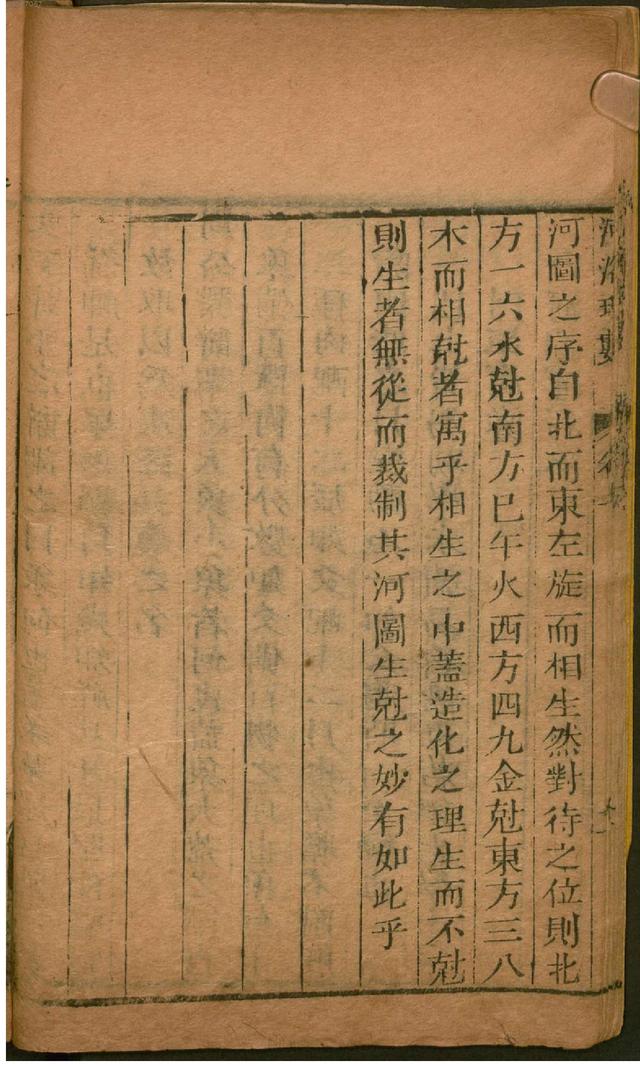 河洛理數
河圖之序自北而東左旋而相生然對待之位則北
方一六水尅南方巳午火西方四九金尅東方三八
木而相尅者寓乎相生之中蓋造化之理生而不尅
則生者無從而裁制其河圖生尅之妙有如此乎